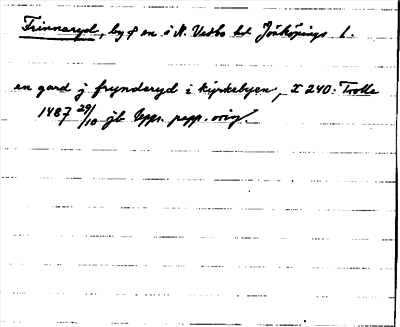 Frinnaryd, by o sn i N. Vedbo hd Jönköpings l.
en gard j frynderyd i kyrkebyen, X 240: Trolle
1487 29/10 jb Upps. papp. orig.